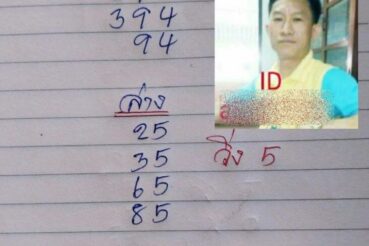 394
94
ID
ล่าง
25
35 วิ่ง 5
65
85